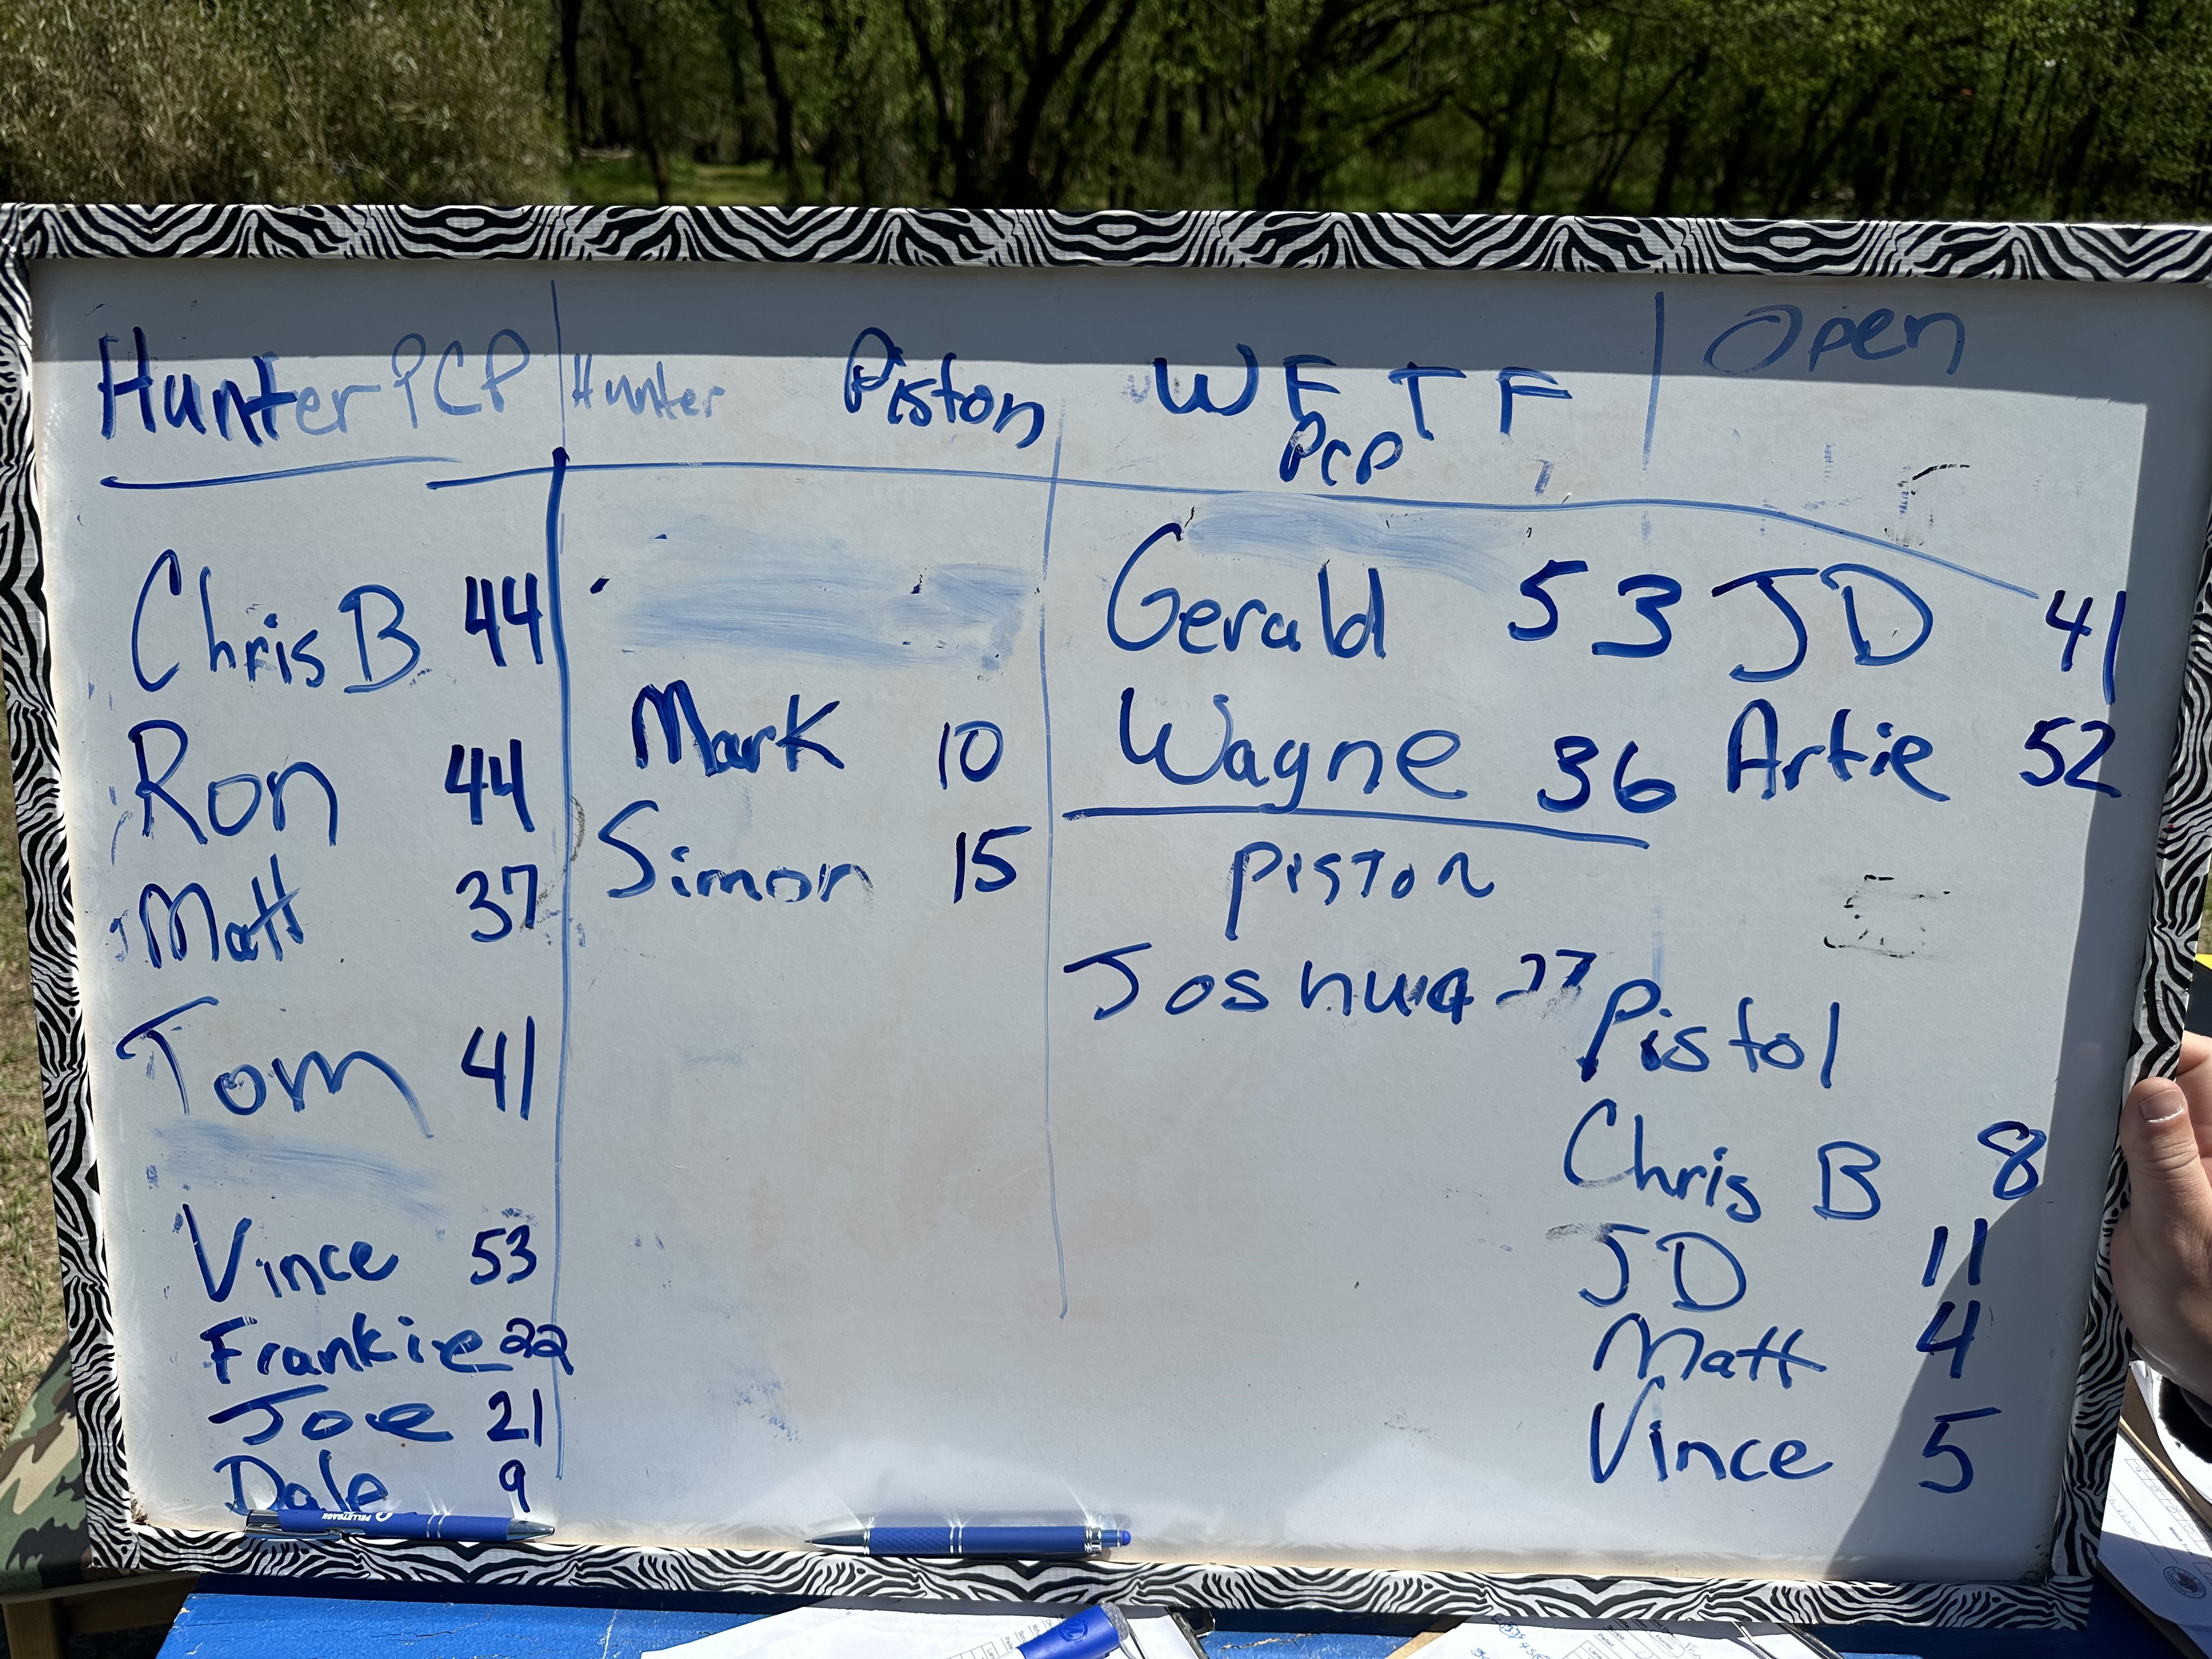 Hunter PCP
Chris B 44
Ron 44
Matt 37
Tom 41
Vince 53
Frankie 22
Joe 21
Dale 9
Hunter Piston
Mark 10
Simon 15
WFTF
PCP
Gerald 53
Wagne 36
Piston
Joshua 27
Open
JD 41
Artie 52
Pistol
Chris B 8
JD 11
Matt 4
Vince 5
PELLETGAGE